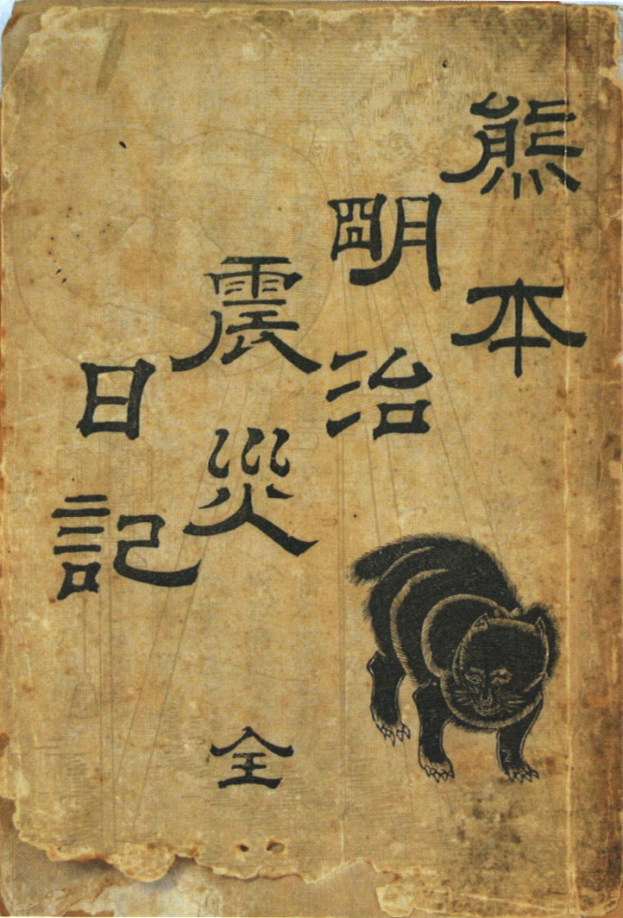 熊本
明治
震災
日記
全